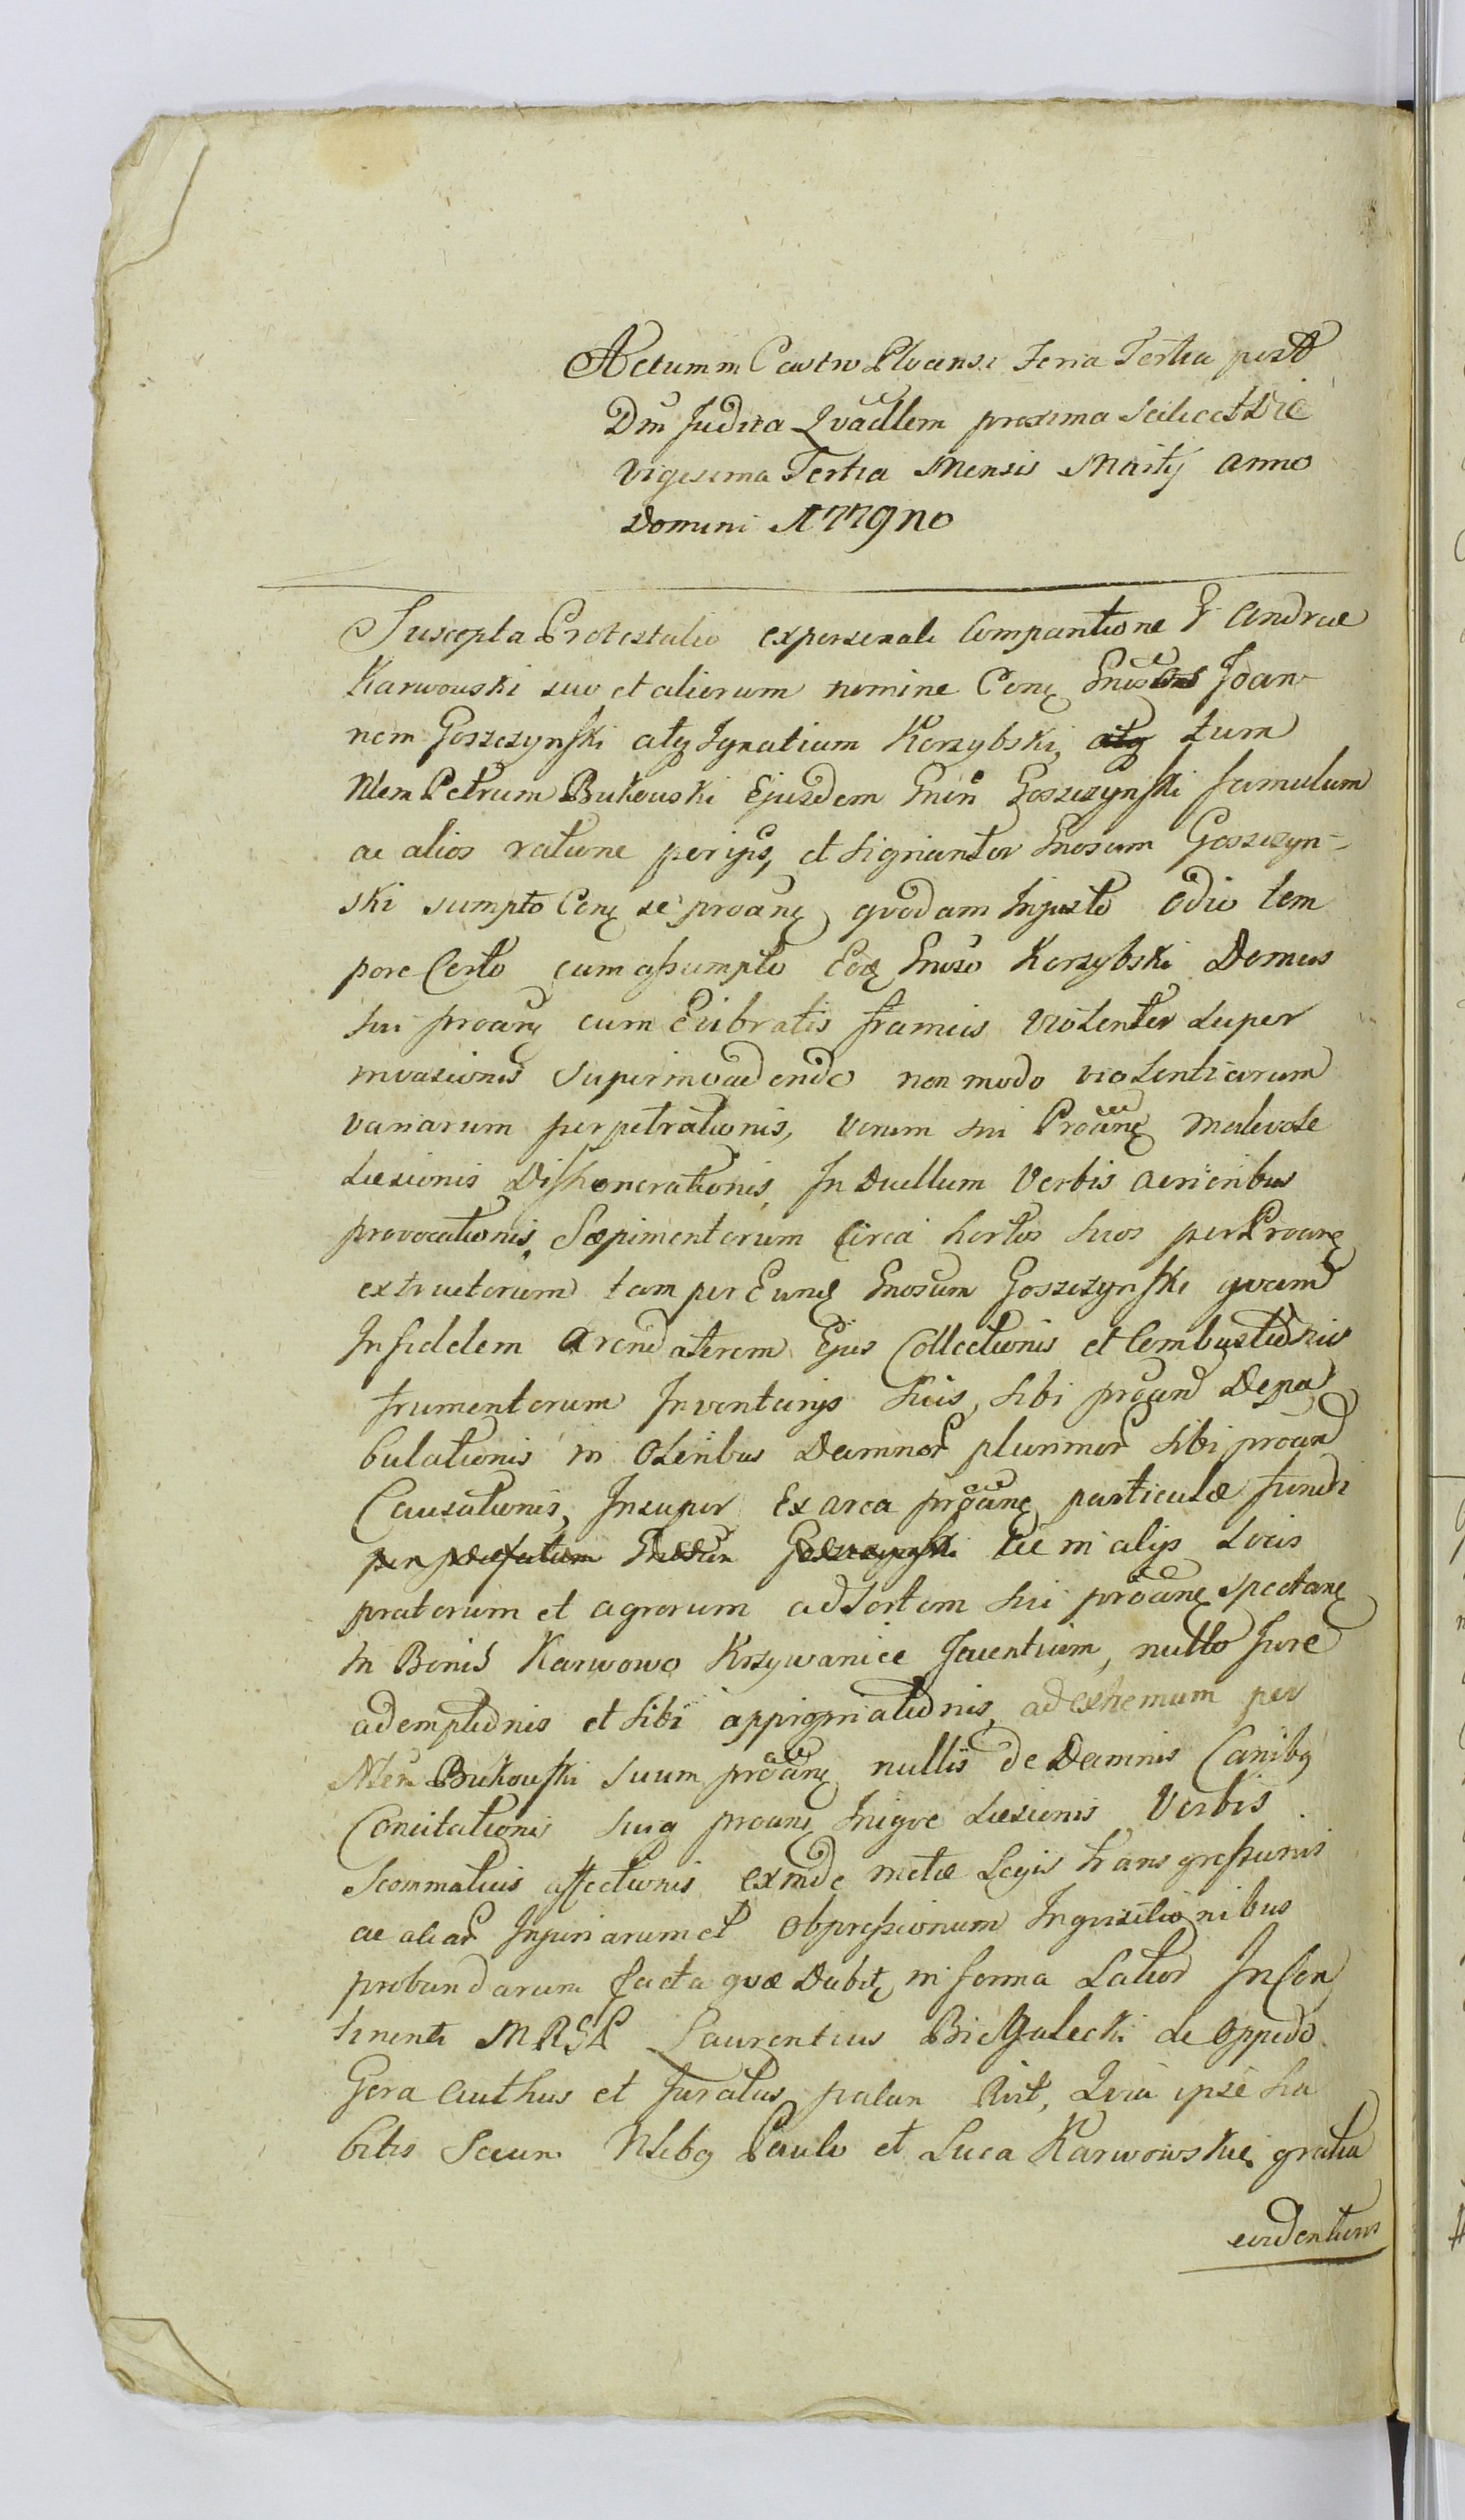 Actum in Castro Plocensi Feria Tertia post
Dm Judica Qvadlem proxima scilicet Die
vigesima Tertia Mensis Martij anno
Domini M779no
Suscepta Protestatio ex personali Comparitione G Andreae
Karwowski suo et aliorum nomine Conq Gnosos Joan-
nem Goszczynski atq Ignatium Korzybski, atq tum
Nlem Petrum Bukowski Ejusdem Gnēn Goszczynski famulum
ac alios ratione per ijs, et signanter Gnosum Goszczyn-
ski sumpto Conq se proang qvodam Injusto Odio tem
pore Certo cum assumpto Eoq Gnoso Korzybski Domus
sui proang cum Evibratis frameis violenter super
invasionis superinvadendo non modo violentiarum
variarum perpetrationis, verum sui Proang malevole
Laesionis Dishonorationis, In Duellum Verbis acrioribus
provocationis, Saepimentorum Circa hortos suos per Proang
extructorum tam per Eunq Gnosum Goszczynski qvam
Infidelem Arendatorem Ejus Collectionis et Combustionis
frumentorum Inventarijs suis, sibi proand Depa
bulationis in Oleribus Damnor plurimor sibi proand
Causationis, Insuper Ex area proang particulae fundi
per praefatum Gnosum Goszczynski ac in alijs Locis
pratorum et agrorum ad Sortem sui proang Spectang
In Bonis Karwowo Krzywanice Jacentium, nullo Jure
ademptionis et sibi appropriationis, ad extremum per
Nlem Bukowski suum proang nullis de Damnis Canibq
Concitationis suiq proang Iniqve Laesionis Verbis
Scommaticis affectionis, exinde metae Legis transgressionis
ac aliar Injuriarum et Obpressionum Inqvisitionibus
probandarum facta qvae Dabit, in forma Latior In Con
tinenti MRGL Laurentius Biegalecki de Oppido
Gora Authus et Juratus palan Rvit, Qvia ipse ha
bitis Secun Nlibq Paulo et Luca Karwowskie, gratia
evidentioris